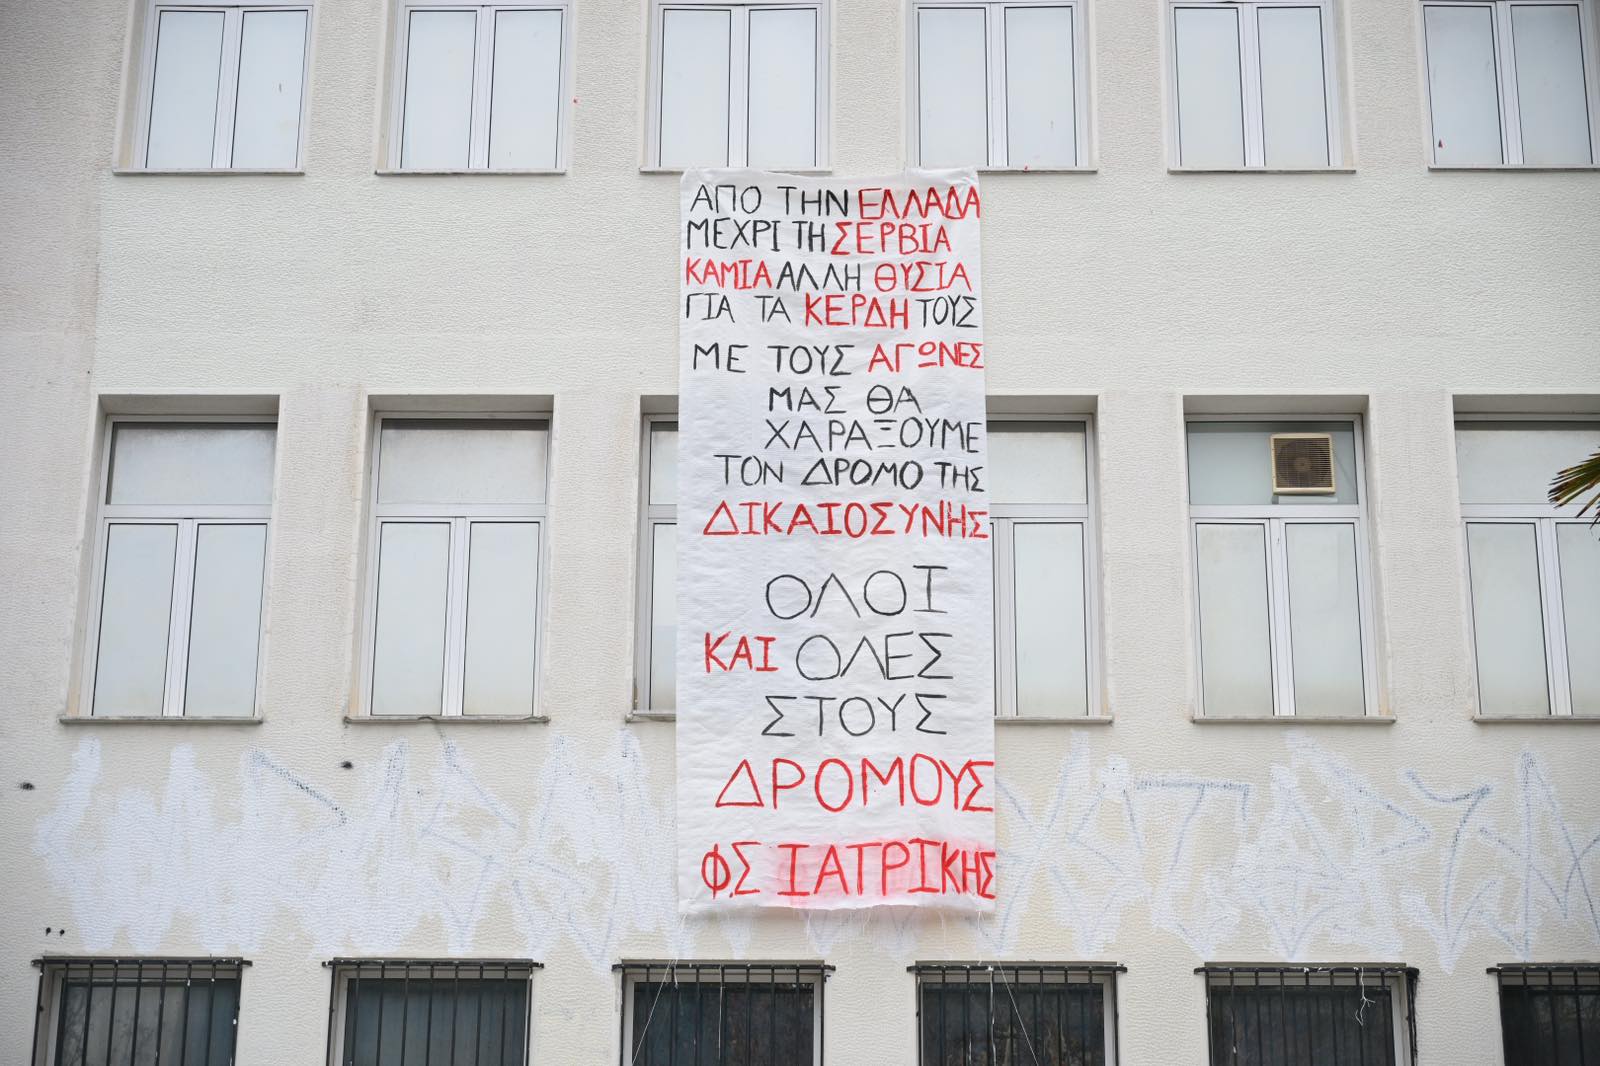 ΑΠΟ ΤΗΝ ΕΛΛΑΔΑ
ΜΕΧΡΙ ΤΗ ΣΕΡΒΙΑ
ΚΑΜΙΑ ΑΛΛΗ ΘΥΣΙΑ
ΓΙΑ ΤΑ ΚΕΡΔΗ ΤΟΥΣ
ΜΕ ΤΟΥΣ ΑΓΩΝΕΣ
ΜΑΣ ΘΑ
ΧΑΡΑΞΟΥΜΕ
ΤΟΝ ΔΡΟΜΟ ΤΗΣ
ΔΙΚΑΙΟΣΥΝΗΣ
ΟΛΟΙ
ΚΑΙ ΟΛΕΣ
ΣΤΟΥΣ
ΔΡΟΜΟΥΣ
Φ.Σ ΙΑΤΡΙΚΗΣ